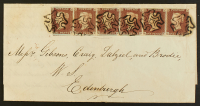 Messrs Gibson, Craig, Dalziel, and Brodie,
W. S.
Edinburgh